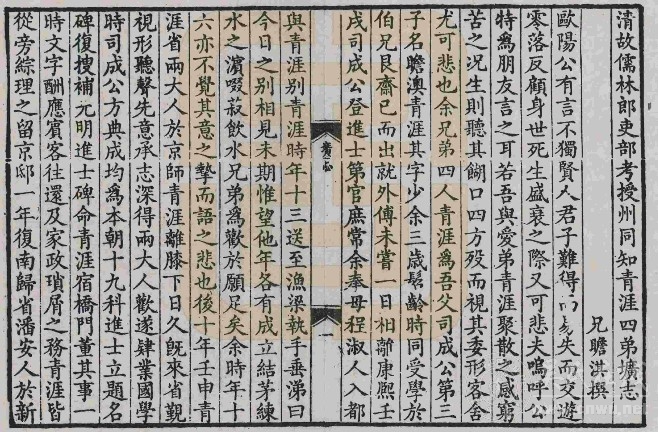 清故儒林郎吏部考授州同知青涯四弟壙志
兄瞻淇撰
歐陽公有言不獨賢人君子難得而易失而交遊
零落反顧身世死生盛衰之際又可悲夫嗚呼公
特為朋友言之耳若吾與愛弟青涯聚散之感窮
苦之況生則聽其餬口四方歿而視其委形客舍
尤可悲也余兄弟四人青涯為吾父司成公第三
子名瞻澳青涯其字少余三歲髫齡時同受學於
伯兄艮齋已而出就外傅未嘗一日相離康熙壬
戌司成公登進士第官庶常余奉母程淑人入都
與青涯別青涯時年十三送至漁梁執手垂涕曰
今日之別相見未期惟望他年各有成立結茅練
水之濱啜菽飲水兄弟為歡於願足矣余時年十
六亦不覺其意之摯而語之悲也後十年壬申青
涯省兩大人於京師青涯離膝下日久旣來省覲
視形聽聲先意承志深得兩大人歡遂肄業國學
時司成公方典成均為本朝十九科進士立題名
碑復搜補元明進士碑命青涯宿橋門董其事一
時文字酬應賓客往還及家政瑣屑之務青涯皆
從旁綜理之留京邸一年復南歸省潘安人於新
一
www.cnwb.net